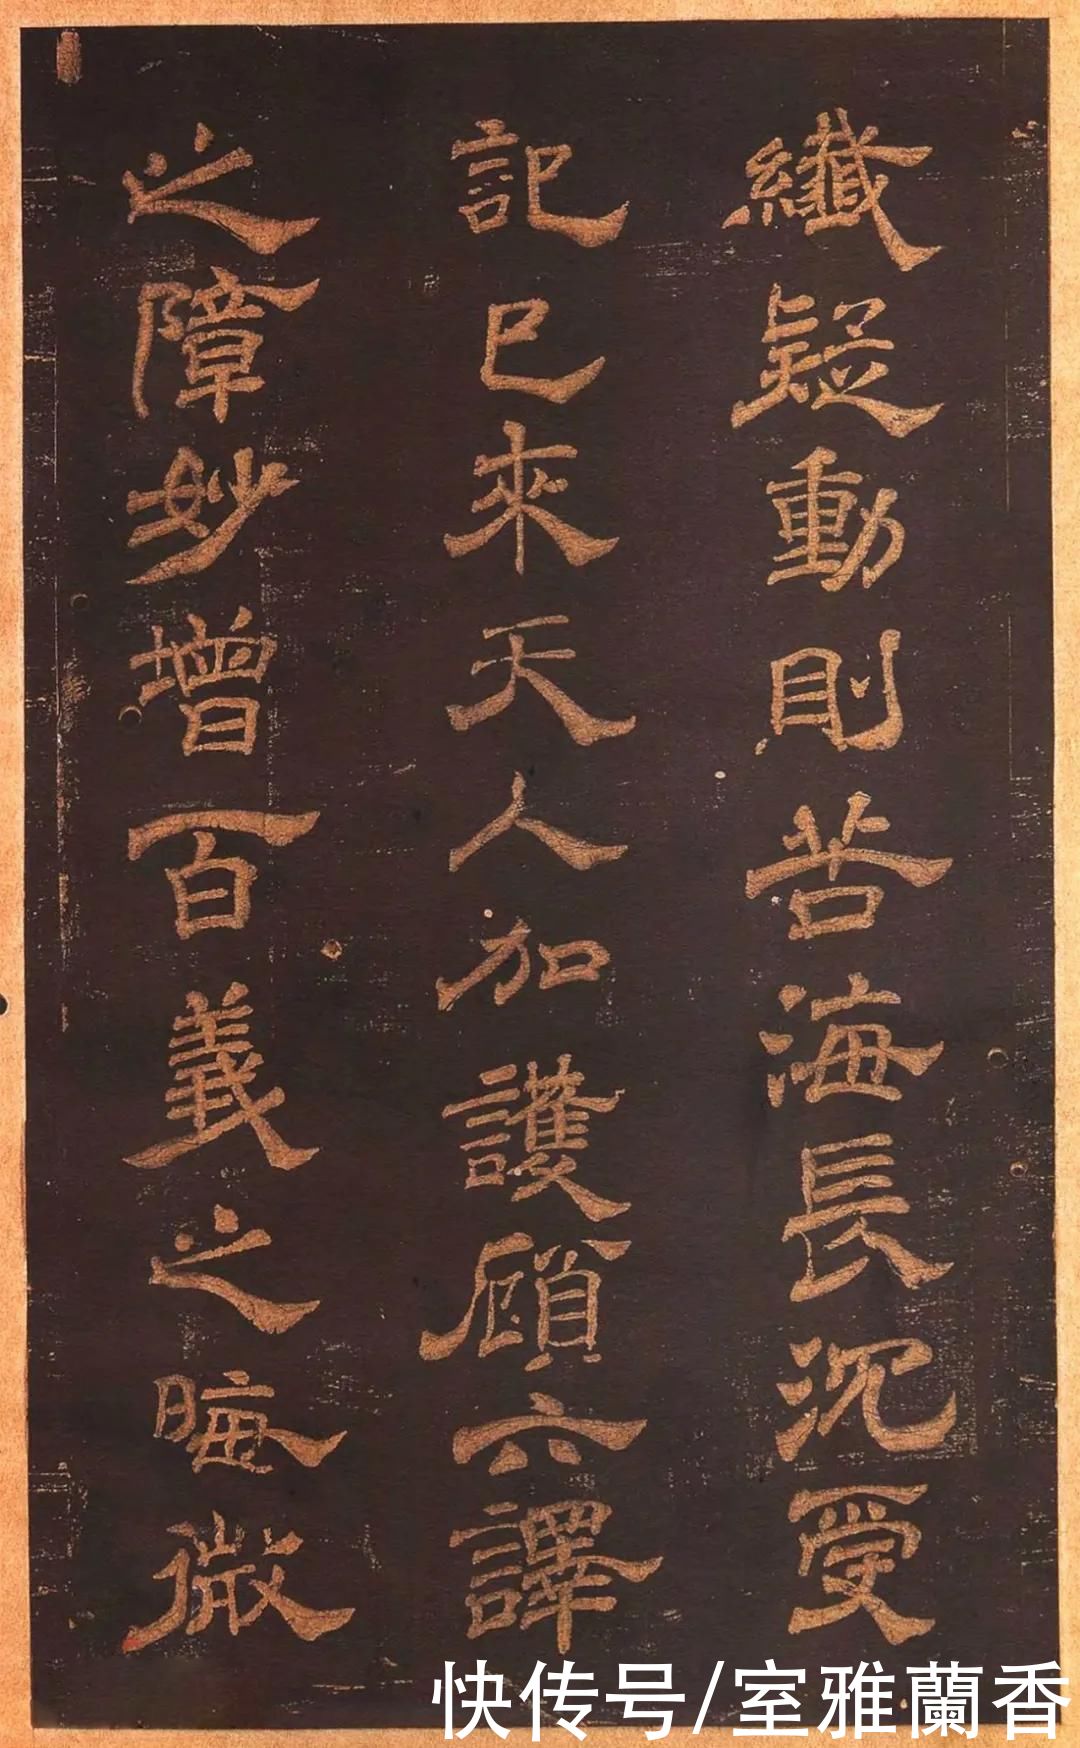 纖疑動則苦海長沉受
記已來天人加護顧六譯
之障妙增百義之晦微
快传号/室雅蘭香